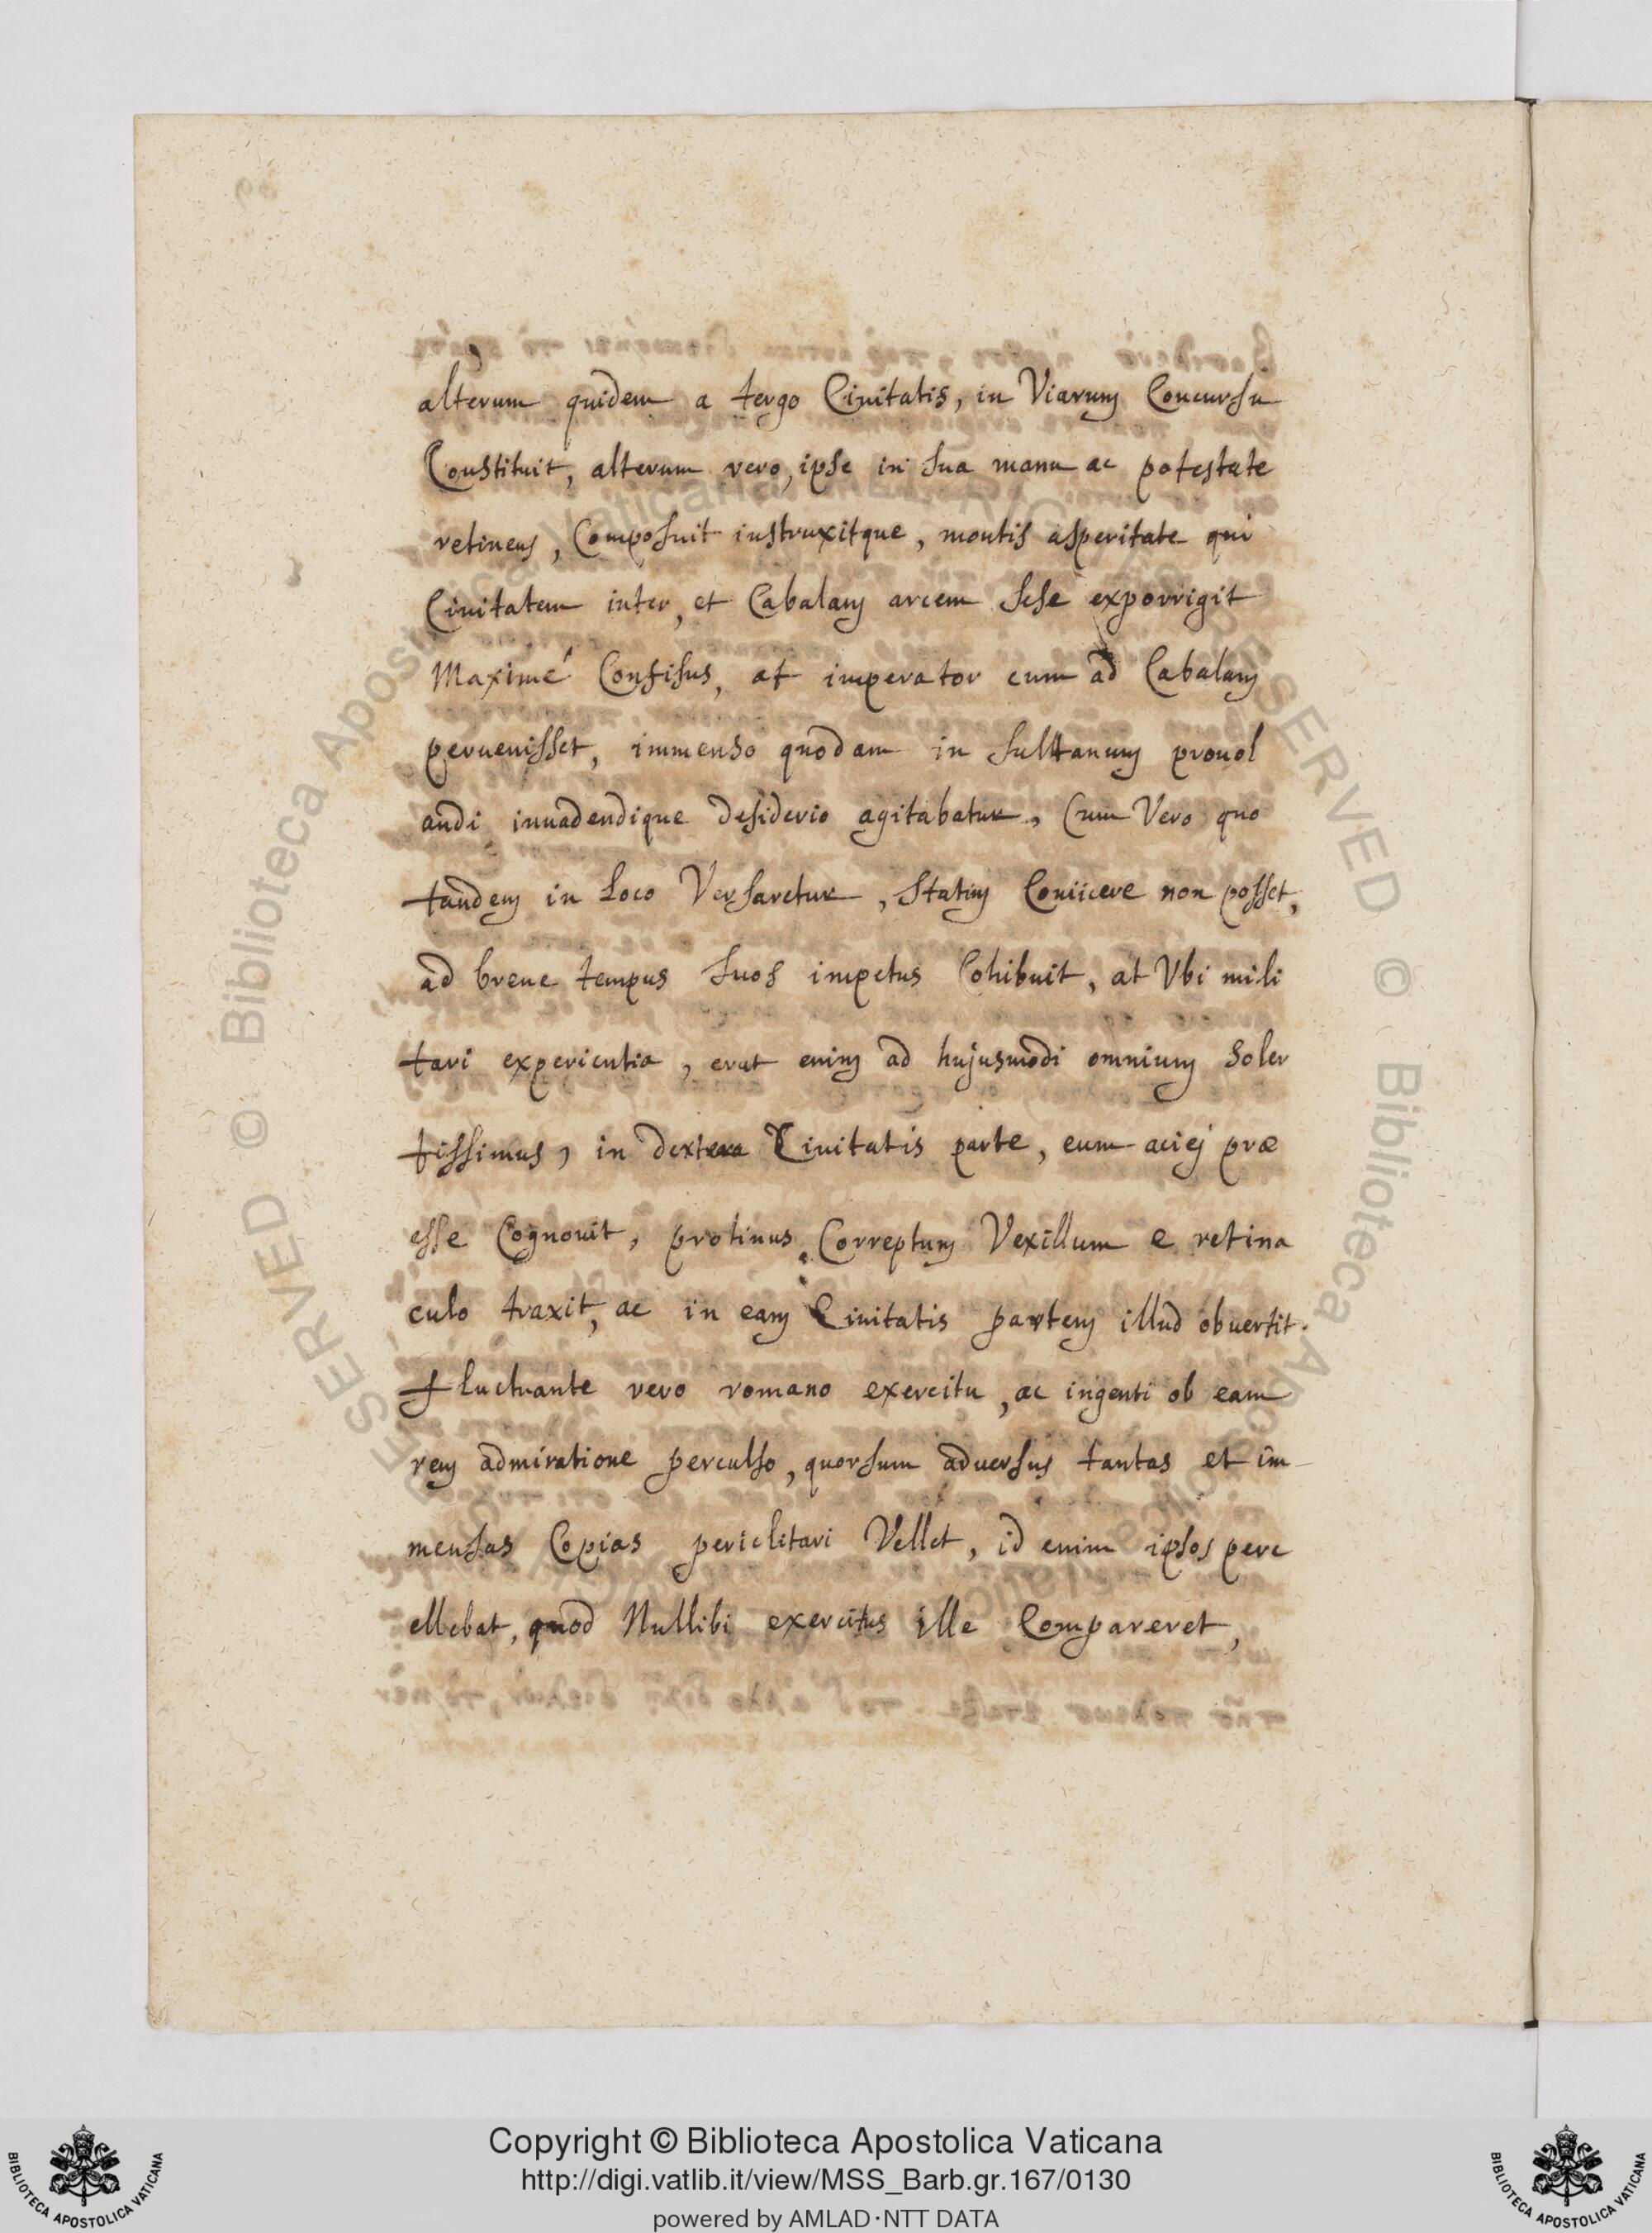 alterum quidem a tergo Ciuitatis, in Viarum Concursu
Constituit, alterum vero, ipse in sua manu ac potestate
retinens, Composuit instruxitque, montis asperitate qui
Ciuitatem inter, et Cabalam arcem sese exporrigit
Maximé Confisus, at imperator cum ad Cabalam
peruenisset, immenso quodam in sulttanum prouol
andi inuadendique desiderio agitabatur, Cum Vero quo
tandem in Loco Versaretur, statim Coniicere non posset,
ad breue tempus suos impetus Cohibuit, at Vbi mili
tari experientia, erat enim ad hujusmodi omnium soler
tissimus, in dextera Ciuitatis parte, eum aciej præ
esse Cognouit, protinus Correptum Vexillum e retina
culo traxit, ac in eam Ciuitatis partem illud obuertit.
fluctuante vero romano exercitu, ac ingenti ob eam
rem admiratione perculso, quorsum aduersus tantas et im-
mensas Copias periclitari Vellet, id enim ipsos perc
ellebat, quod Nullibi exercitus ille Compareret,
Copyright © Biblioteca Apostolica Vaticana
http://digi.vatlib.it/view/MSS_Barb.gr.167/0130
powered by AMLAD·NTT DATA
BIBLIOTECA APOSTOLICA VATICANA
BIBLIOTECA APOSTOLICA VATICANA